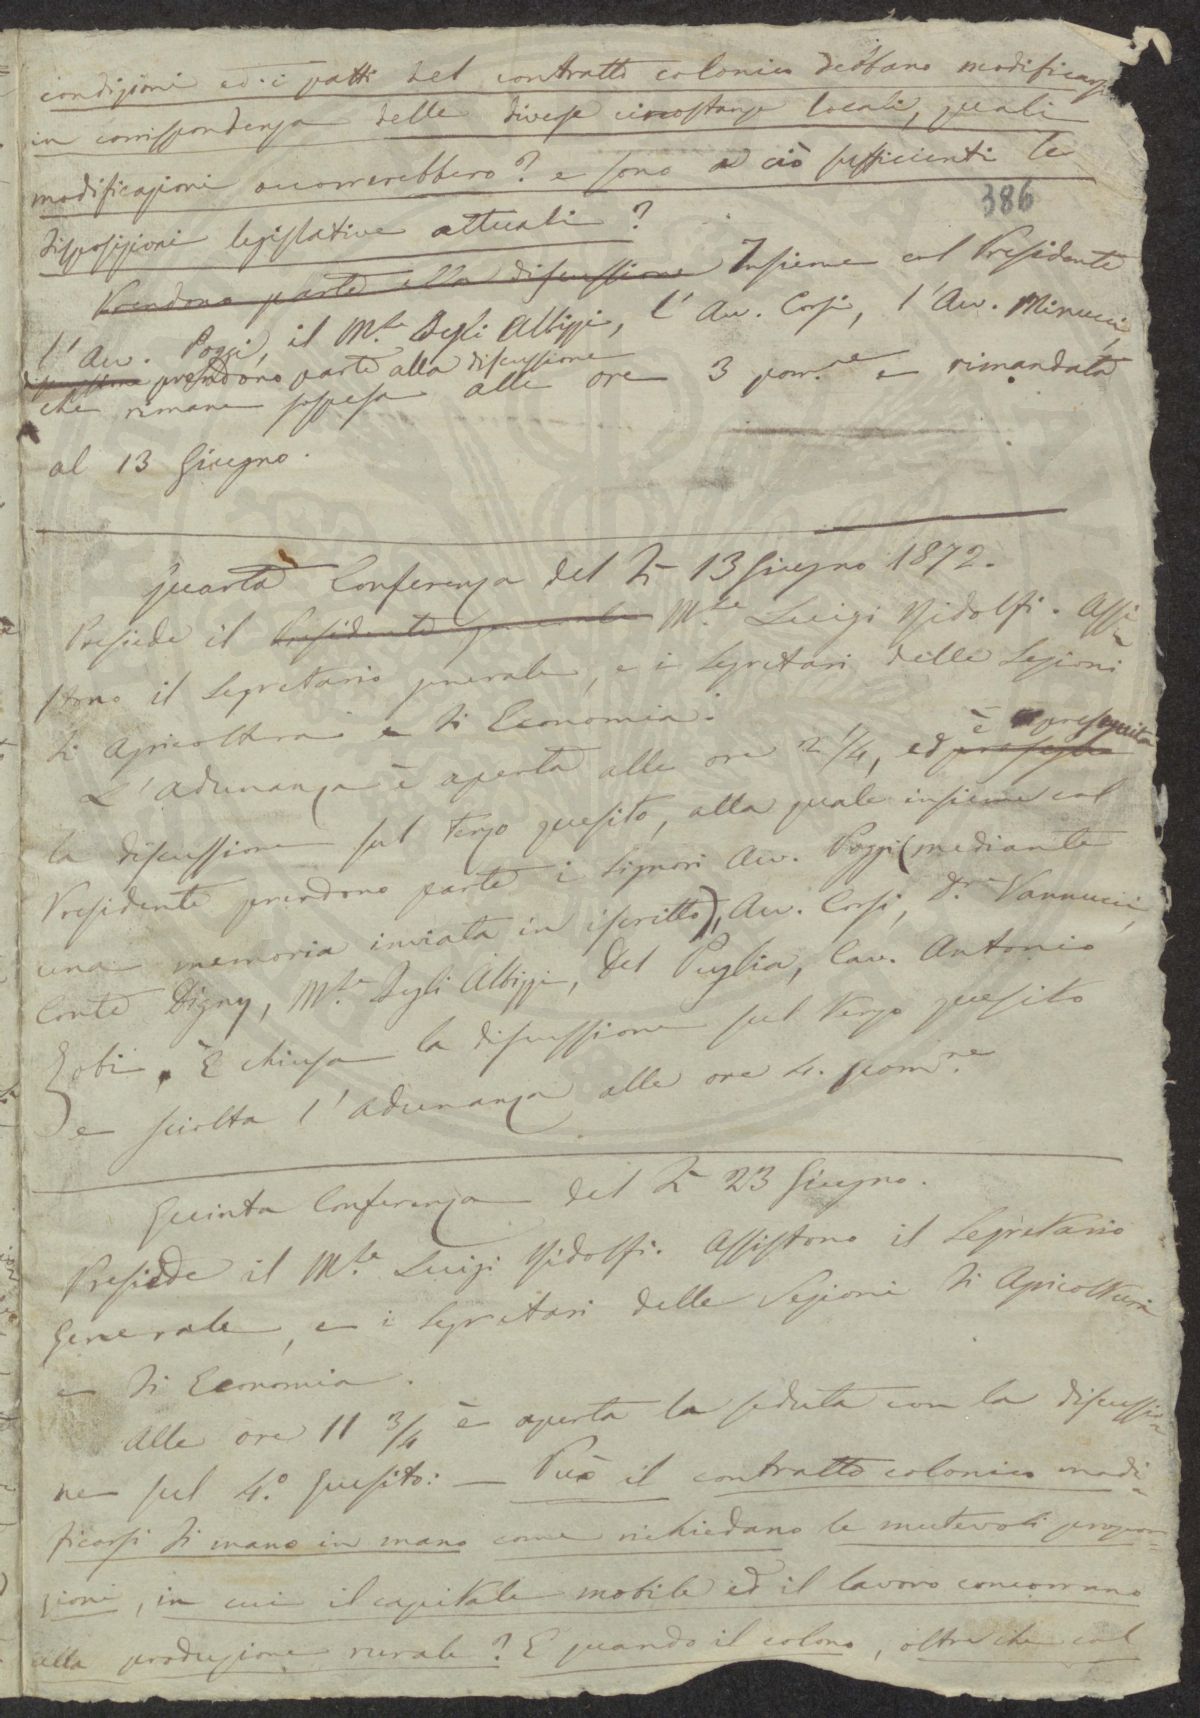 condizioni ed i patti del contratto colonico debbano modificarsi
in corrispondenza delle diverse circostanze locali, quali
modificazioni occorrerebbero? e sono a ciò sufficienti le
386
disposizioni legislative attuali?
Prendono parte alla discussione Insieme col Presidente
l'Avv. Poggi, il M.se Degli Albizzi, l'Avv. Corsi, l'Avv. Minucci,
prendono parte alla discussione
che rimane sospesa alle ore 3 pom.ne e rimandata
al 13 Giugno.
Quarta Conferenza del dì 13 Giugno 1872.
Presiede il Presidente generale M.se Luigi Ridolfi. Assi-
stono il Segretario generale, e i Segretari delle Sezioni
di Agricoltura e di Economia.
è proseguita
L'adunanza è aperta alle ore 2 1/4, ed prosegue
la discussione sul terzo quesito, alla quale insieme col
Presidente prendono parte i Signori Avv. Poggi (mediante
una memoria inviata in iscritto), Avv. Corsi, D.r Vannucci,
Conte Digny, M.se Degli Albizzi, Del Puglia, Cav. Antonio
Zobi. È chiusa la discussione sul terzo quesito
e sciolta l'adunanza alle ore 4. pom.ne
Quinta Conferenza del dì 23 Giugno.
Presiede il M.se Luigi Ridolfi. Assistono il Segretario
Generale, e i Segretari delle Sezioni di Agricoltura
e di Economia.
Alle ore 11 3/4 è aperta la seduta con la discussio-
ne sul 4.º Quesito: — Può il contratto colonico modi-
ficarsi di mano in mano come richiedano le mutevoli propor-
zioni, in cui il capitale mobile ed il lavoro concorrano
alla produzione rurale? E quando il colono, oltre che col